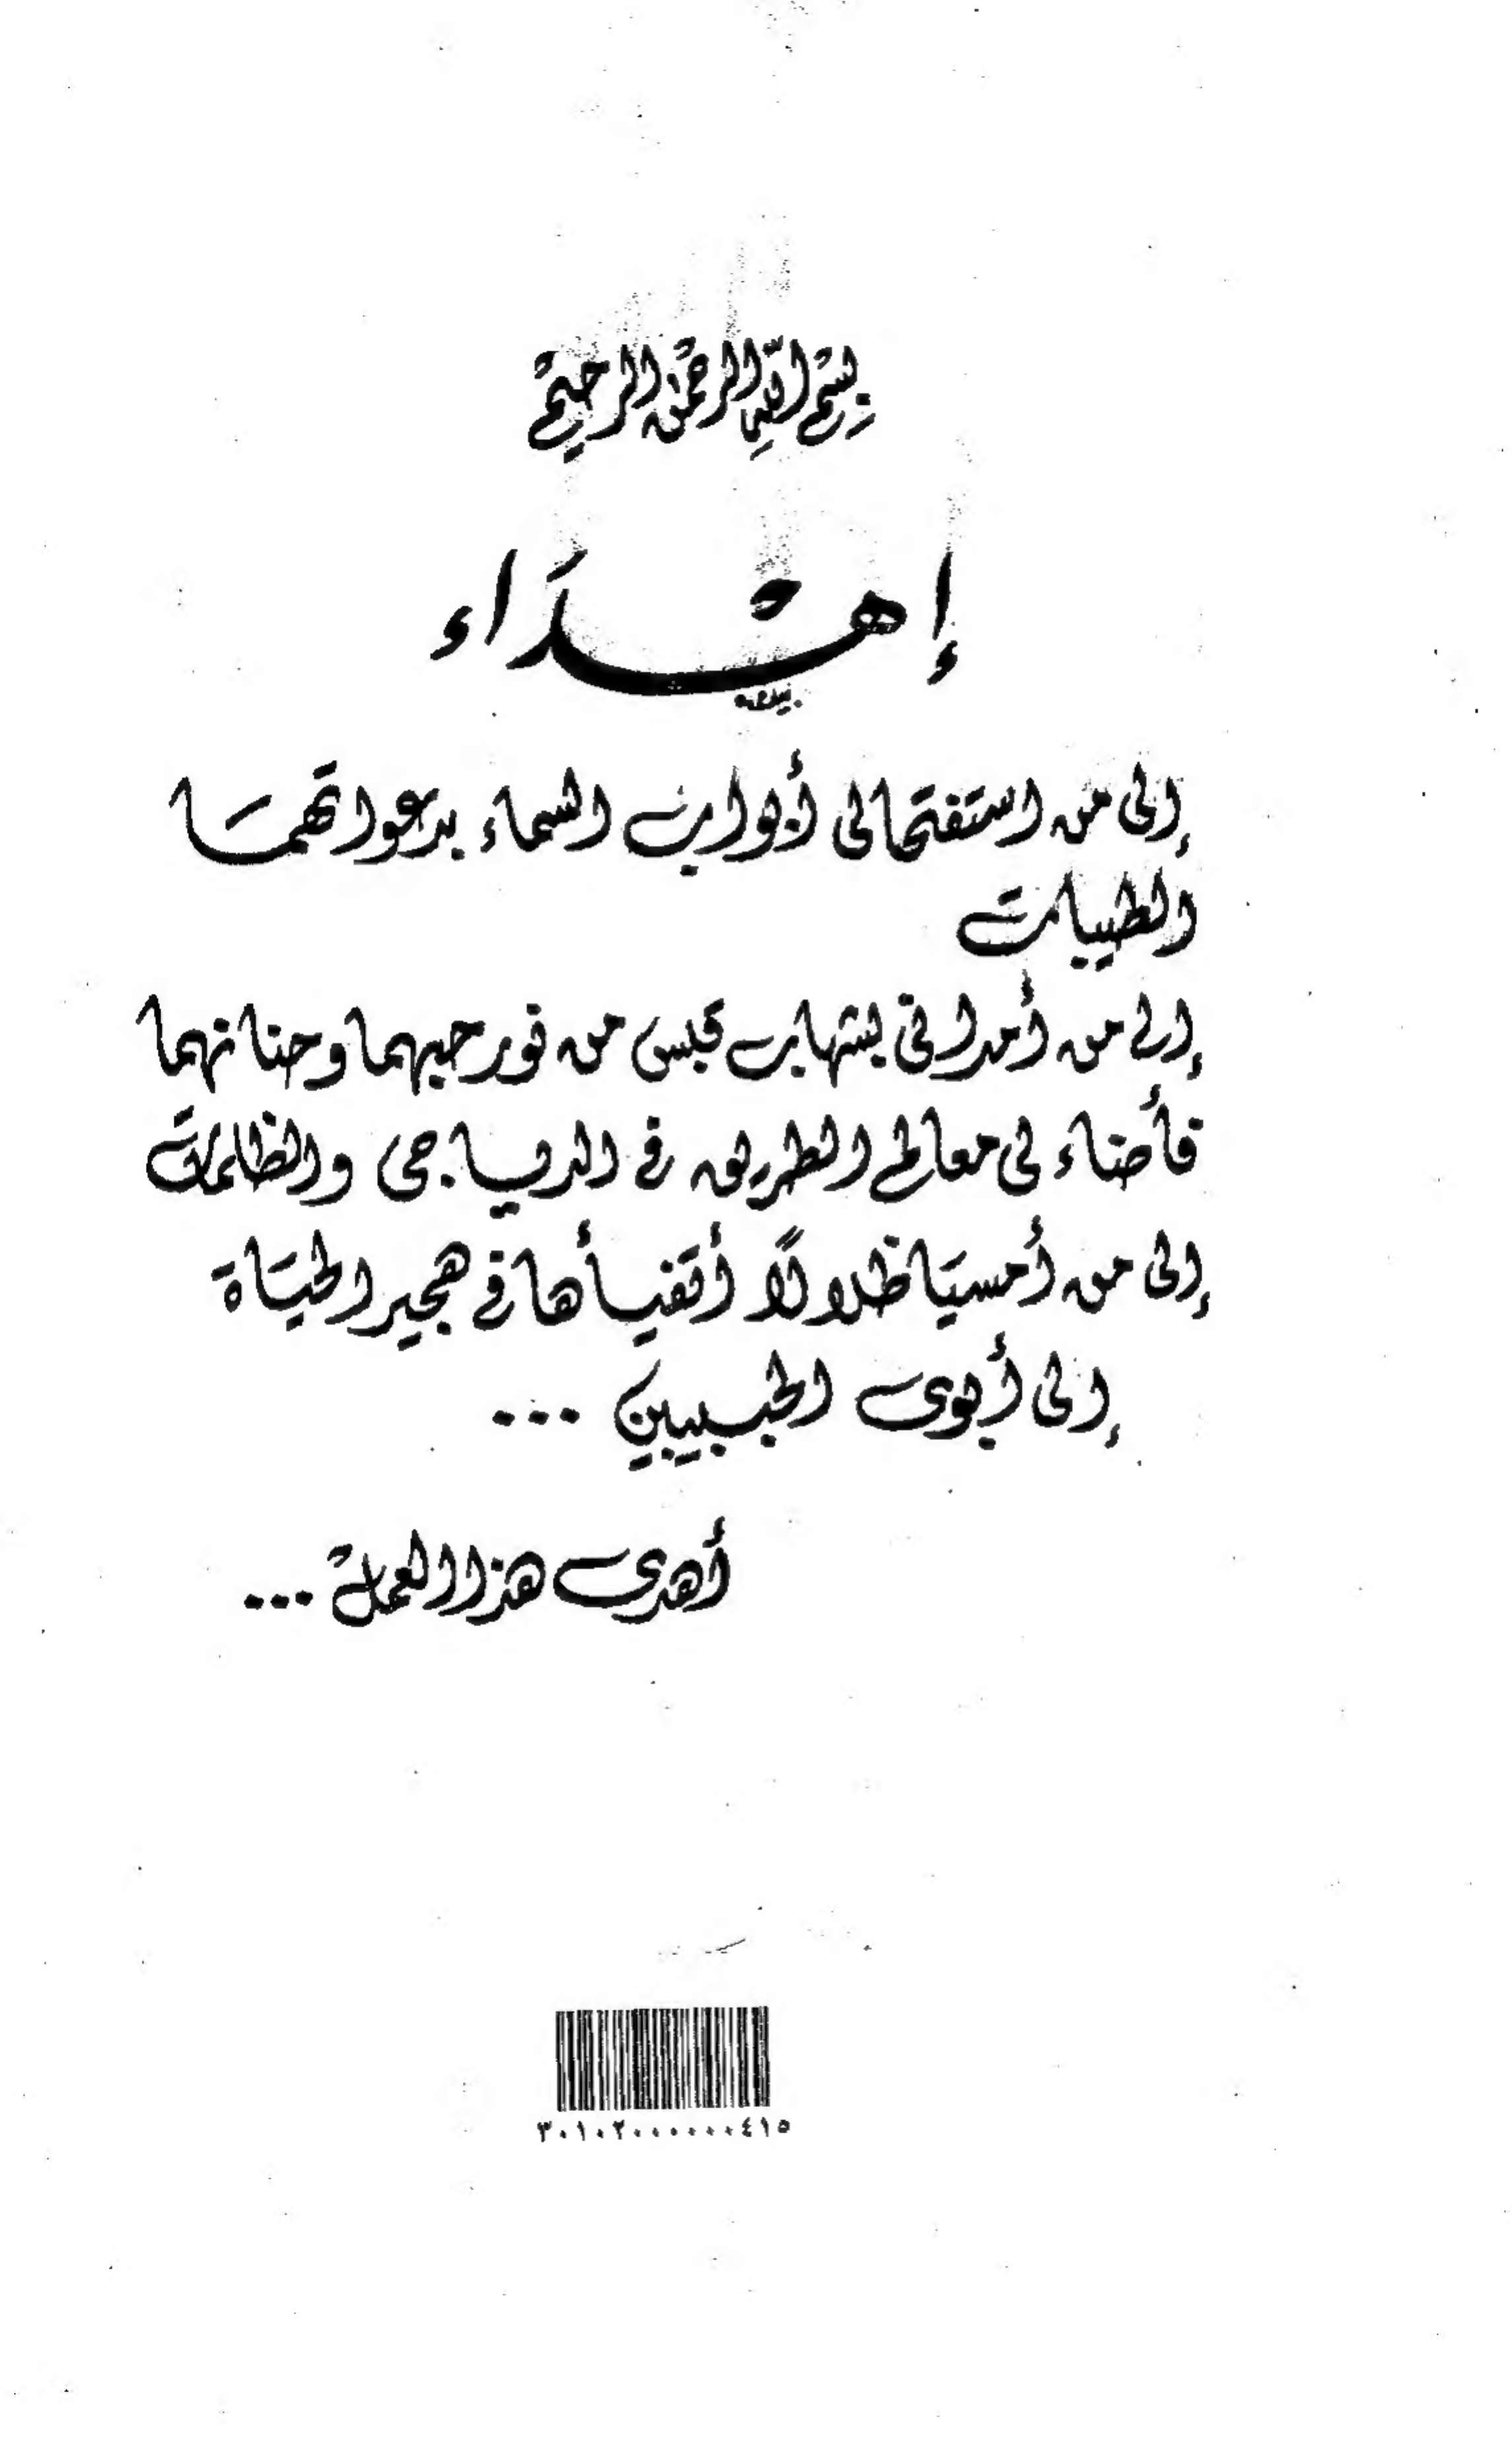 بسم الله الرحمن الرحيم
إهداء
إلى من استفتحا لى أبواب السماء بدعواتهما
الطيبات
إلى من أمدانى بشهاب قبس من نور حبهما وحنانهما
فأضاء لى معالم الطريق فى الدياجى والظلمات
إلى من أمسيا ظلالًا أتفيأها فى هجير الحياة
إلى أبوى الحبيبين ...
أهدى هذا العمل ...
٣٠١٠٢٠٠٠٠٠٠٤١٥